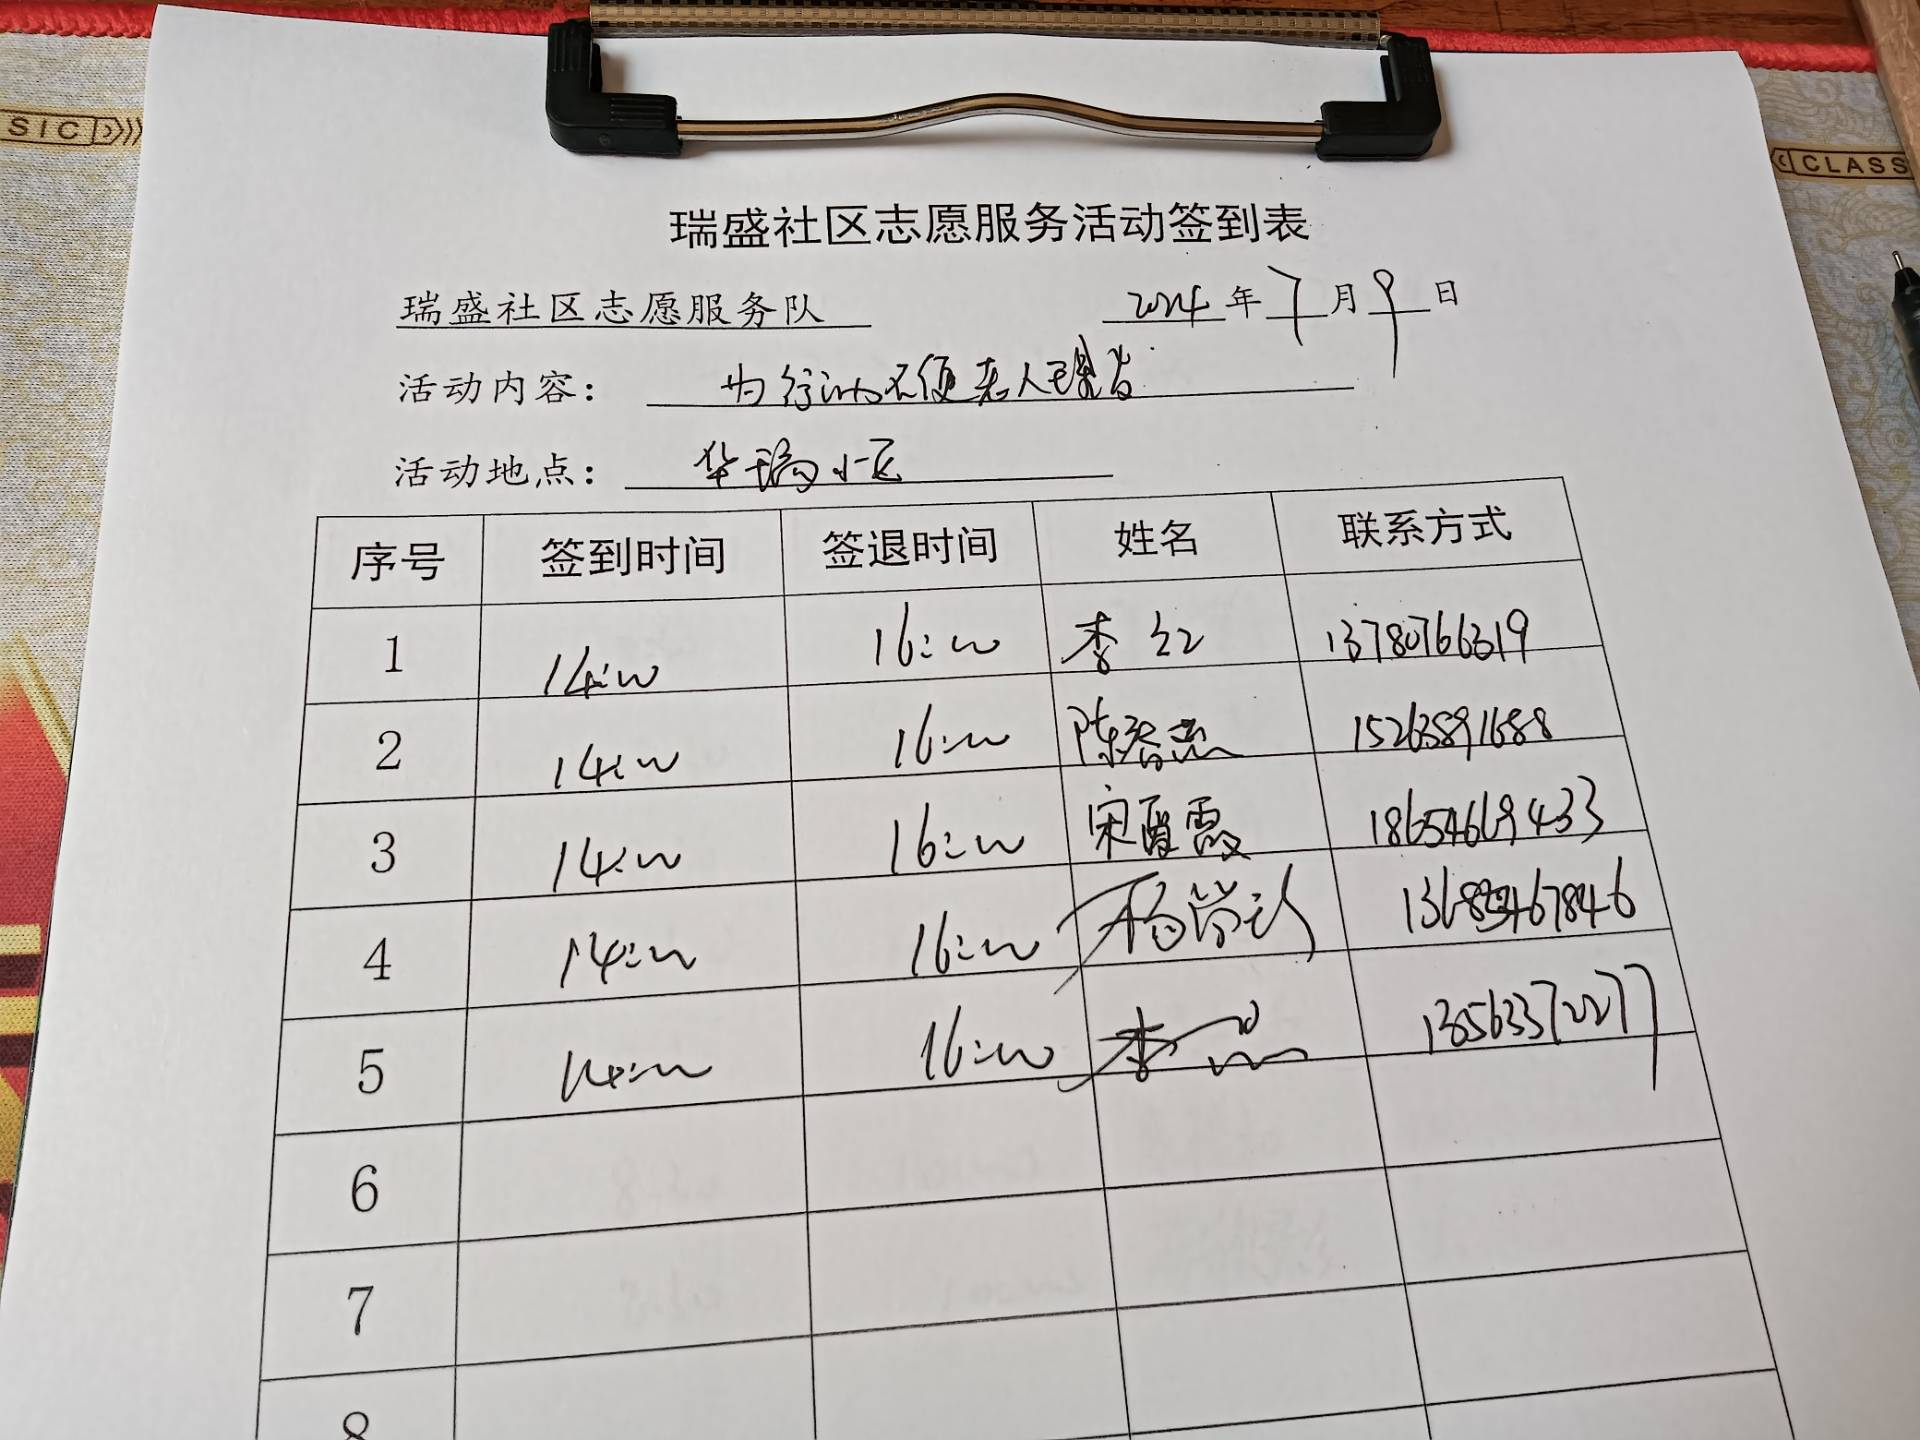 SIC
CLASS
瑞盛社区志愿服务活动签到表
瑞盛社区志愿服务队 2024年7月9日
活动内容： 为行动不便老人理发
活动地点： 华瑞小区
序号 签到时间 签退时间 姓名 联系方式
1 14:00 16:00 李红 13780766319
2 14:00 16:00 陈 15263891688
3 14:00 16:00 宋霞 18654669433
4 14:00 16:00 杨 13685467846
5 14:00 16:00 李 13563372277
6
7
8